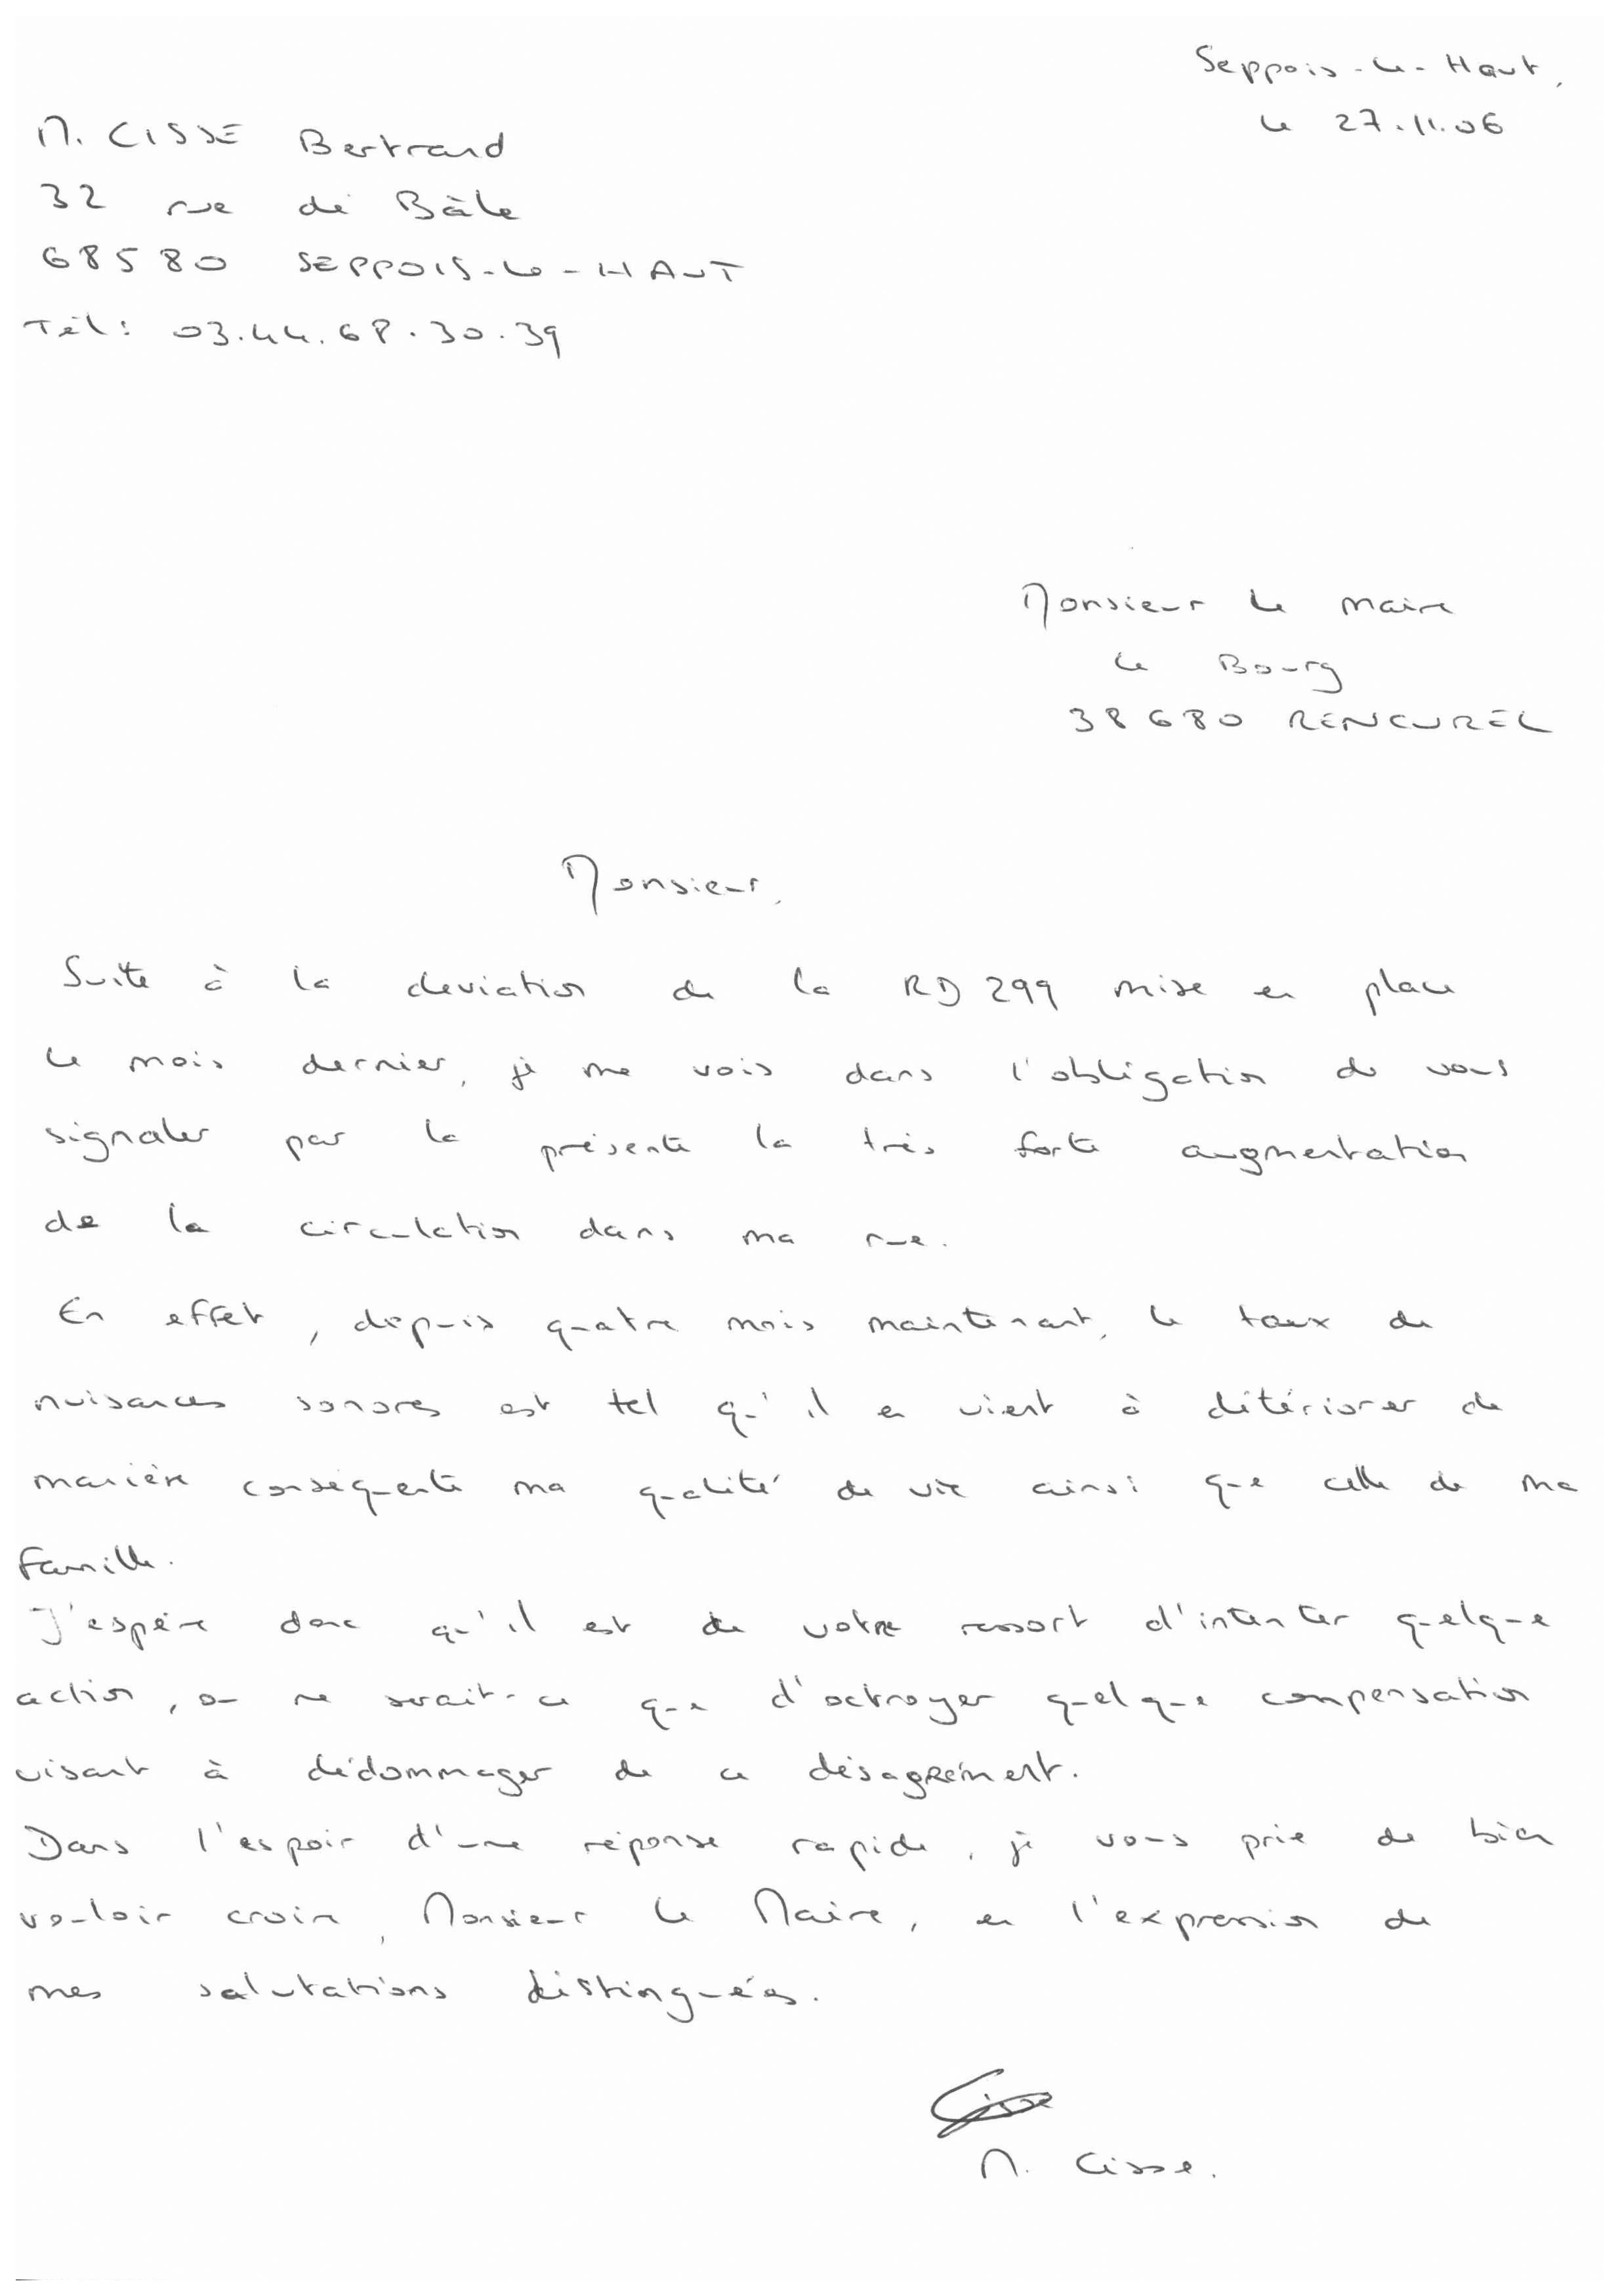 Seppois-le-Haut,
le 27.11.06
M. CISSE Bertrand
32 rue de Bâle
68580 SEPPOIS-le-HAUT
Tél: 03.44.68.30.39
Monsieur le maire
le Bourg
38680 RENCUREL
Monsieur,
Suite à la deviation de la RD 299 mise en place
le mois dernier, je me vois dans l'obligation de vous
signaler par la présente la très forte augmentation
de la circulation dans ma rue.
En effet, depuis quatre mois maintenant, le taux de
nuisances sonores est tel qu'il en vient à détériorer de
manière conséquente ma qualité de vie ainsi que celle de ma
famille.
J'espère donc qu'il est de votre ressort d'intenter quelque
action, ou ne serait-ce que d'octroyer quelque compensation
visant à dédommager de ce désagrément.
Dans l'espoir d'une réponse rapide, je vous prie de bien
vouloir croire, Monsieur le Maire, en l'expression de
mes salutations distinguées.
Cisse
M. Cisse.